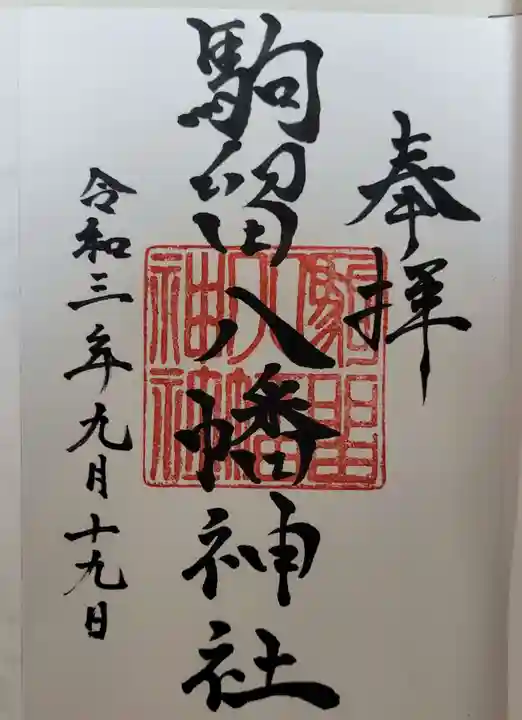 奉拝
駒留八幡神社
駒留
八幡
神社
令和三年九月十九日